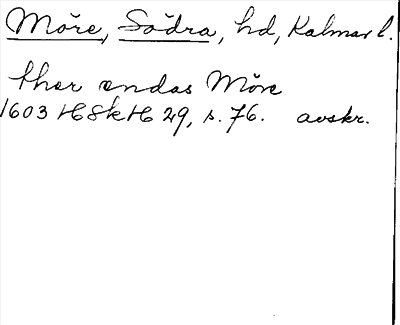 Möre, Södra, hd, Kalmar l.
ther ændas Möre
1603 HSkH 29, s. 76. avskr.